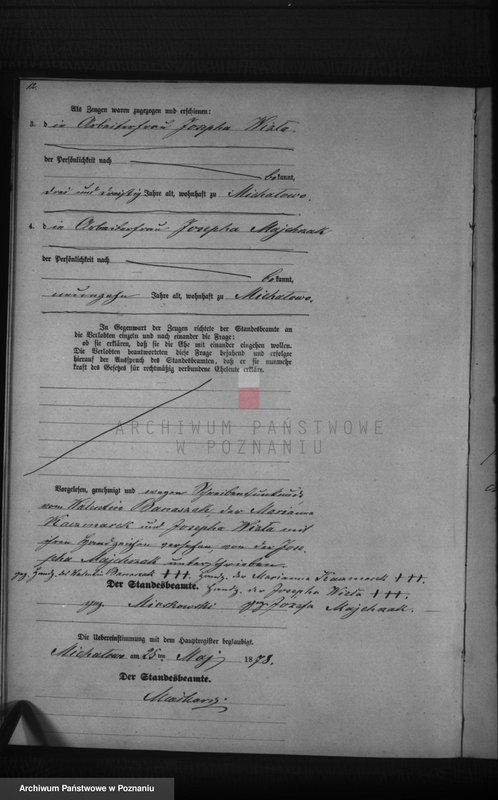 12.
Als Zeugen waren zugezogen und erschienen:
3. die Arbeiterfrau Josepha Wizla
der Persönlichkeit nach
bekannt,
drei und Jahre alt, wohnhaft zu Michalowo.
4. die Arbeiterfrau Josepha Majchzak
der Persönlichkeit nach
bekannt,
neunzehn Jahre alt, wohnhaft zu Michalowo.
In Gegenwart der Zeugen richtete der Standesbeamte an
die Verlobten einzeln und nach einander die Frage:
ob sie erklären, daß sie die Ehe mit einander eingehen wollen.
Die Verlobten beantworteten diese Frage bejahend und erfolgte
hierauf der Ausspruch des Standesbeamten, daß er sie nunmehr
kraft des Gesetzes für rechtmäßig verbundene Eheleute erkläre.
ARCHIWUM PAŃSTWOWE
W POZNANIU
Vorgelesen, genehmigt und wegen Schreibensunkunde
vom Valentin Banaszak der Marianna
Kaczmarek und Josepha Wizla mit
ihren Handzeichen versehen von der Jose-
pha Majchzak unterschrieben
gez. Handz. des Valentin Banaszak +++. Handz. der Marianna Kaczmarek +++.
Der Standesbeamte. Handz. der Josepha Wizla +++.
gez. gez. Jozefa Majchzak.
Die Uebereinstimmung mit dem Hauptregister beglaubigt.
Michalowo am 25ten Maj 1878.
Der Standesbeamte.
Archiwum Państwowe w Poznaniu